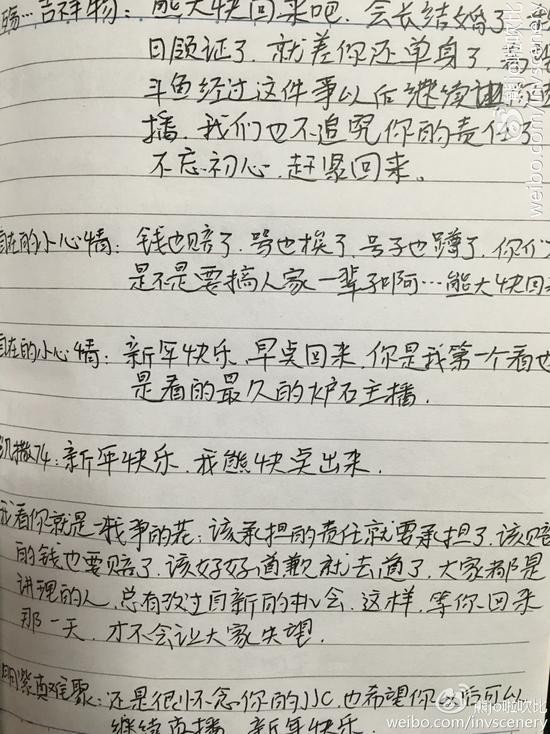 吉祥物：熊大快回来吧，会长结婚了，
日领证了，就差你还单身了，
斗鱼经过这件事以后继续让你
播，我们也不追究你的责任了
不忘初心，赶紧回来。
自在的小心情：钱也赔了，骂也挨了，号子也蹲了，你们
是不是要搞人家一辈子啊…熊大快回
自在的小心情：新年快乐，早点回来，你是我第一个看也
是看的最久的炉石主播．
撒74：新年快乐，我熊快点出来．
我看你就是找事的花：该承担的责任就要承担了，该赔
的钱也要赔了，该好好道歉就去道了，大家都是
讲理的人，总有改过自新的机会，这样，等你回来
那一天，才不会让大家失望．
紫真难聚：还是很怀念你的JJC，也希望你以后可以
继续直播，新年快乐．
weibo.com/invscenery
熊fo啦吹比
weibo.com/invscenery